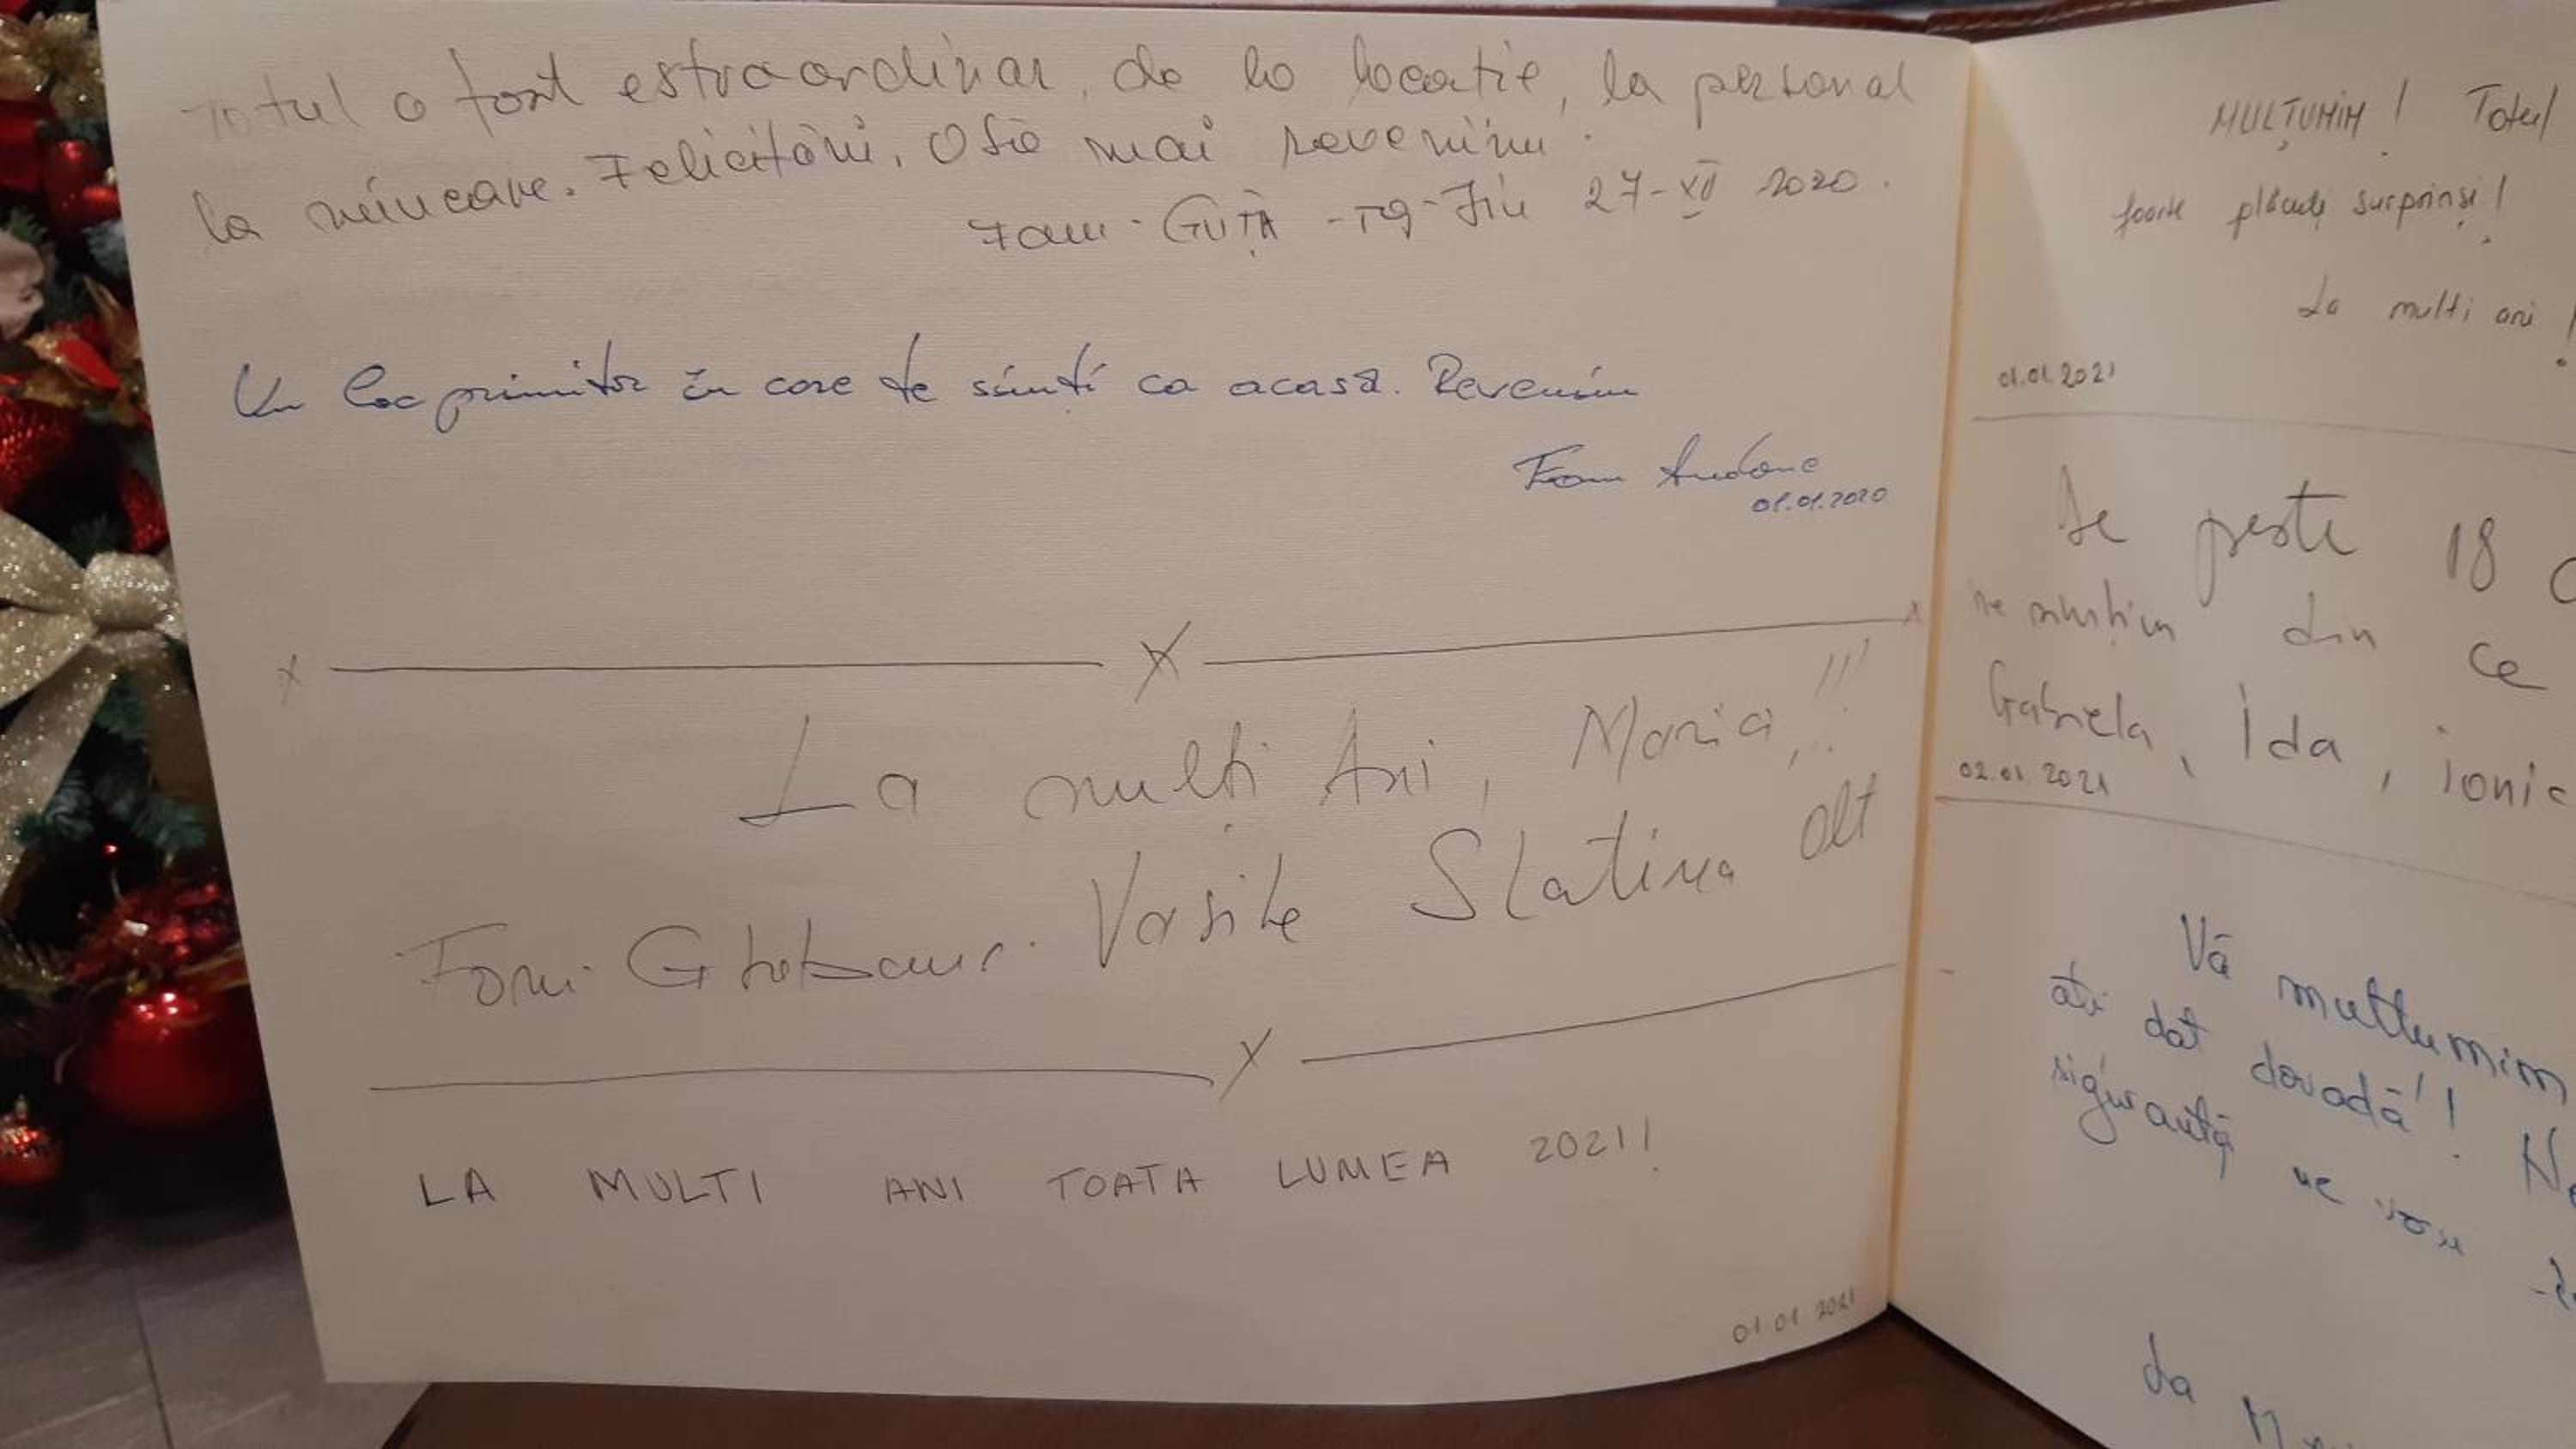 Totul a fost estraordinar, de la locatie, la personal
la mîncare. Felicitări. O să mai revenim.
Fam. GUȚĂ - Tg-Jiu 27-XII 2020.
Un loc primitor în care te simți ca acasă. Revenim
Fam Andone
01.01.2020
x x x
La mulți Ani, Maria, !!!
Fam. Vasile Slatina Olt
x
LA MULTI ANI TOATA LUMEA 2021!
01 01 2021
MULȚUMIM! Totul
foarte plăcuți surprinși!
La multi ani!
01.01.2021
De peste 18
ne din ce
Gabriela, Ida, ionic
02.01.2021
Vă multumim
ati dat dovadă! Ne
siguranță ne vom
La